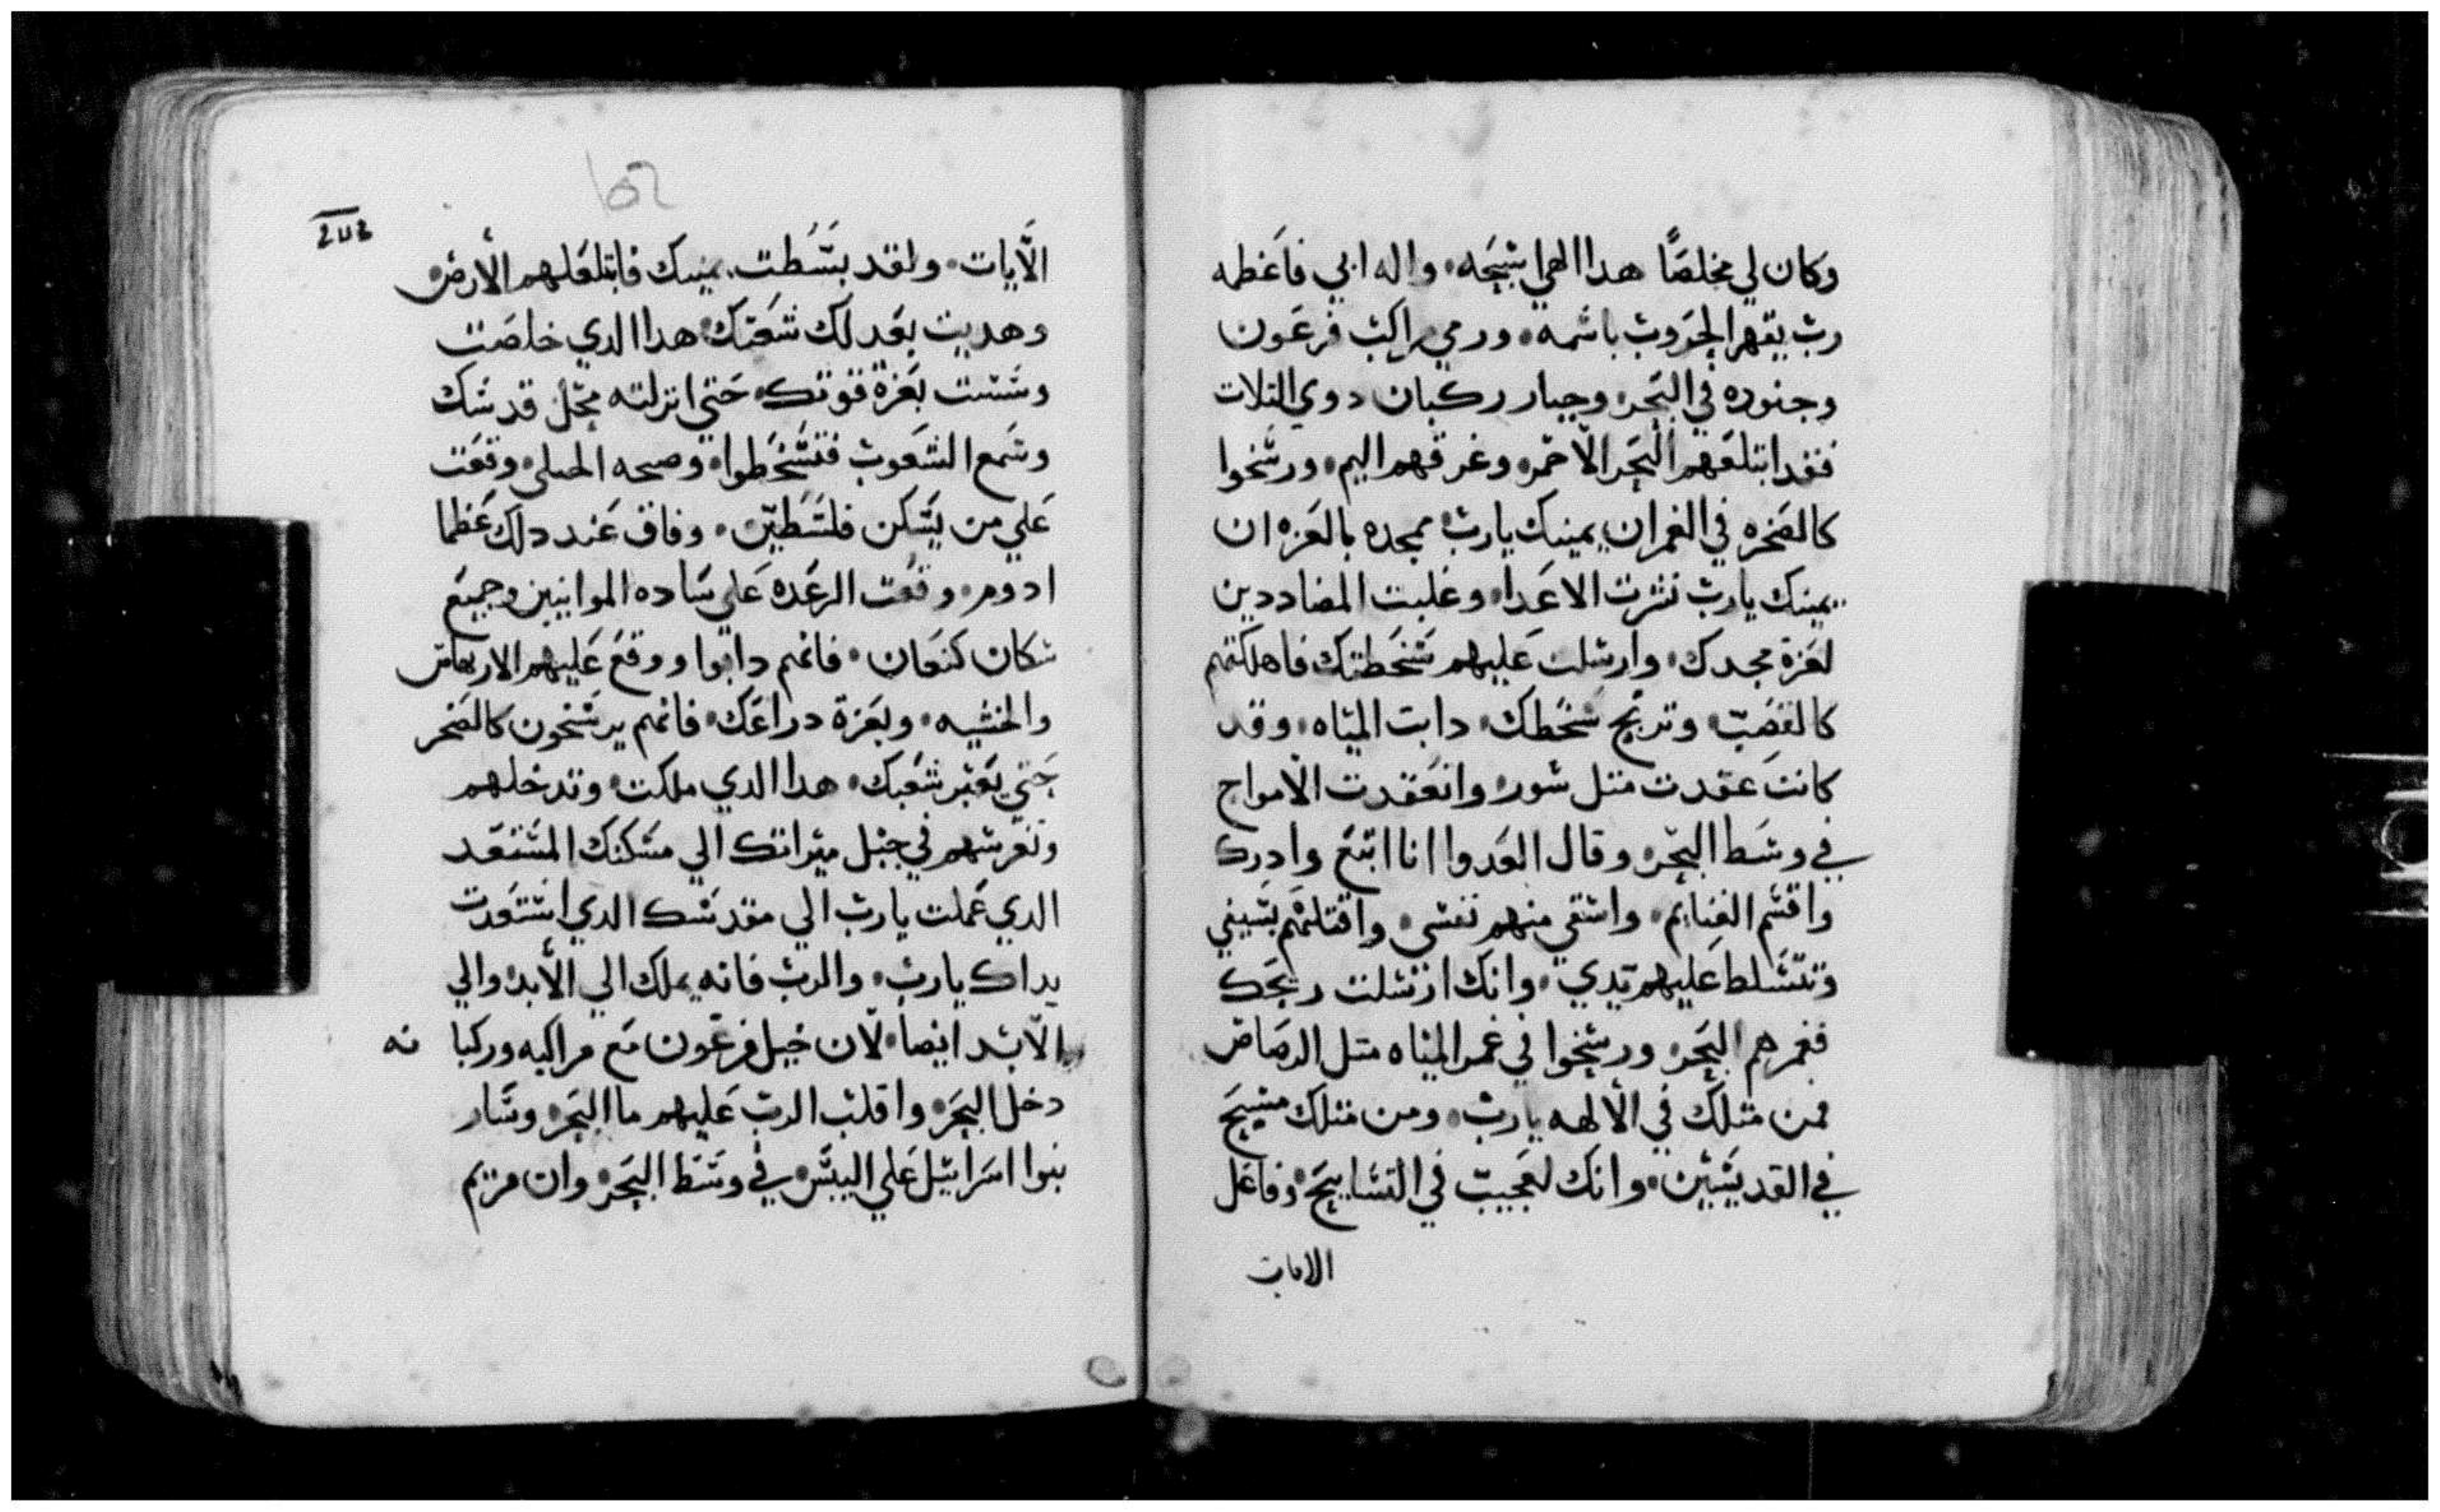 وكان لي مخلصًا هدا الهي اسبحه، واله ابي فاعظمه
رب يقهر الحروب باسمه، ورمي مراكب فرعون
وجنوده في البحر، وجبار ركبان دوي التلات
فقد ابتلعهم البحر الاحمر، وغرقهم اليم، ورسخوا
كالصخره في الغمر ان يمينك يارب، ممجده بالعزه ان
يمينك يارب نثرت الاعدا، وغلبت المضاددين
لعزة مجدك، وارسلت عليهم سخطتك فاهلكتهم
كالقصب، وتريح سخطك، دابت المياه، وقد
كانت عقدت متل سور، وانعقدت الامواج
في وسط البحر، وقال العدوا انا اتبع وادرك
واقسم الغنايم، واشفي منهم نفسي، واقتلهم بسيفي
وتتسلط عليهم يدي، وانك ارسلت ريحك
فغمرهم البحر، ورسخوا في غمر المياه متل الرصاص
فمن متلك في الالهه يارب، ومن متلك مسيح
في القديسين، وانك لعجيب في التسابيح، وفاعل
الايات
202
الايات، ولقد بسطت يمينك فابتلعلهم الأرض
وهديت بعدلك شعبك، هدا الدي خلصت
وشئت بعزة قوتك، حتي انزلته محل قدسك
وسمع الشعوب فسخطوا، وصحه المحلي، وقعت
علي من يسكن فلسطين، وفاق عند دلك عظما
ادوم، وقعت الرعده علي ساده الموابيين وجميع
سكان كنعان، فانهم دابوا ووقع عليهم الارتعاش
والخشيه، وبعزة دراعك، فانهم يرسخون كالصخر
حتي يعبر شعبك، هدا الدي ملكت، وتدخلهم
وتغرسهم في جبل ميراتك الي مسكنك المستعد
الدي عملت يارب الي مقدسك الدي استعدت
يداك يارب، والرب فانه يملك الي الأبد والي
الابد ايضا، لان خيل فرعون مع مراكبه وركبا نه
دخل البحر، واقلب الرب عليهم ما البحر، وسار
بنوا اسراييل علي اليبس، في وسط البحر، وان مريم